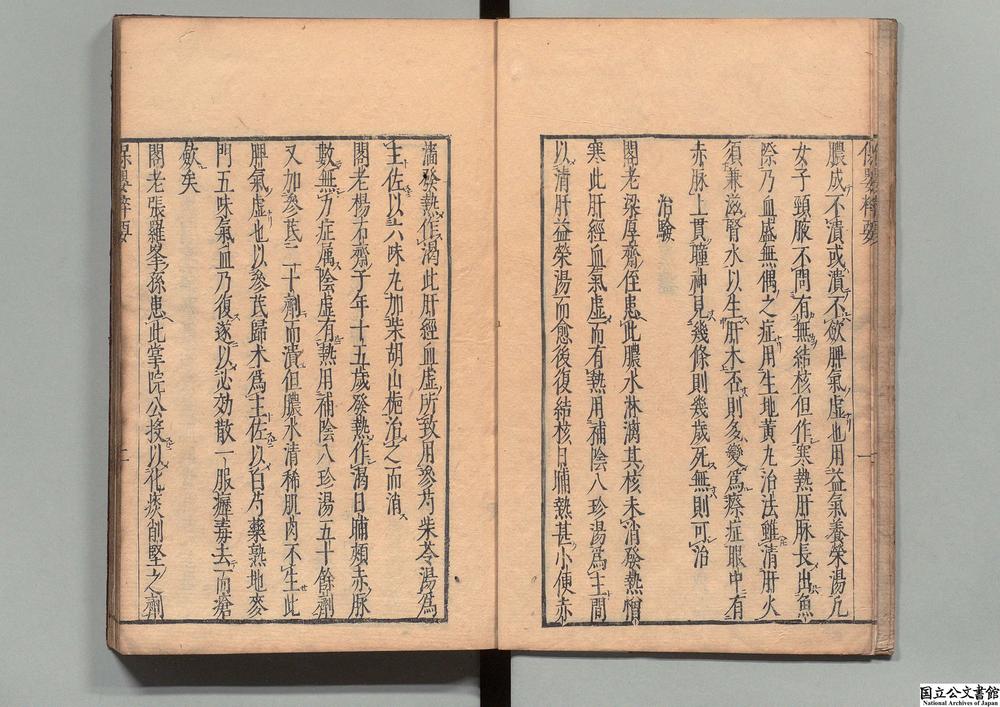 膿成不潰或潰不斂脾氣虛也用益氣養榮湯凡
女子頸腋不問有無結核但作寒熱肝脉長出魚
際乃血盛無偶之症用生地黃丸治法雖清肝火
須兼滋腎水以生肝木否則多變爲瘵症眼中有
赤脉上貫瞳神見幾條則幾歲死無則可治
治驗
閣老梁厚齋侄患此膿水淋漓其核未消發熱憎
寒此肝經血氣虛而有熱用補陰八珍湯爲主間
以清肝益榮湯而愈後復結核日晡熱甚小便赤
濇發熱作渴此肝經血虛所致用參芍柴苓湯爲
主佐以六味丸加柴胡山梔治之而消
閣老楊石齋子年十五歲發熱作渴日晡頰赤脉
數無力症属陰虛有熱用補陰八珍湯五十餘劑
又加參芪二十劑而潰但膿水清稀肌肉不生此
脾氣虛也以參芪歸术爲主佐以白芍藥熟地麥
門五味氣血乃復遂以必効散一服癧毒去而瘡
斂矣
閣老張羅峯孫患此掌院公投以化痰削堅之劑
保嬰粹要
一
保嬰粹要
二
国立公文書館
National Archives of Japan